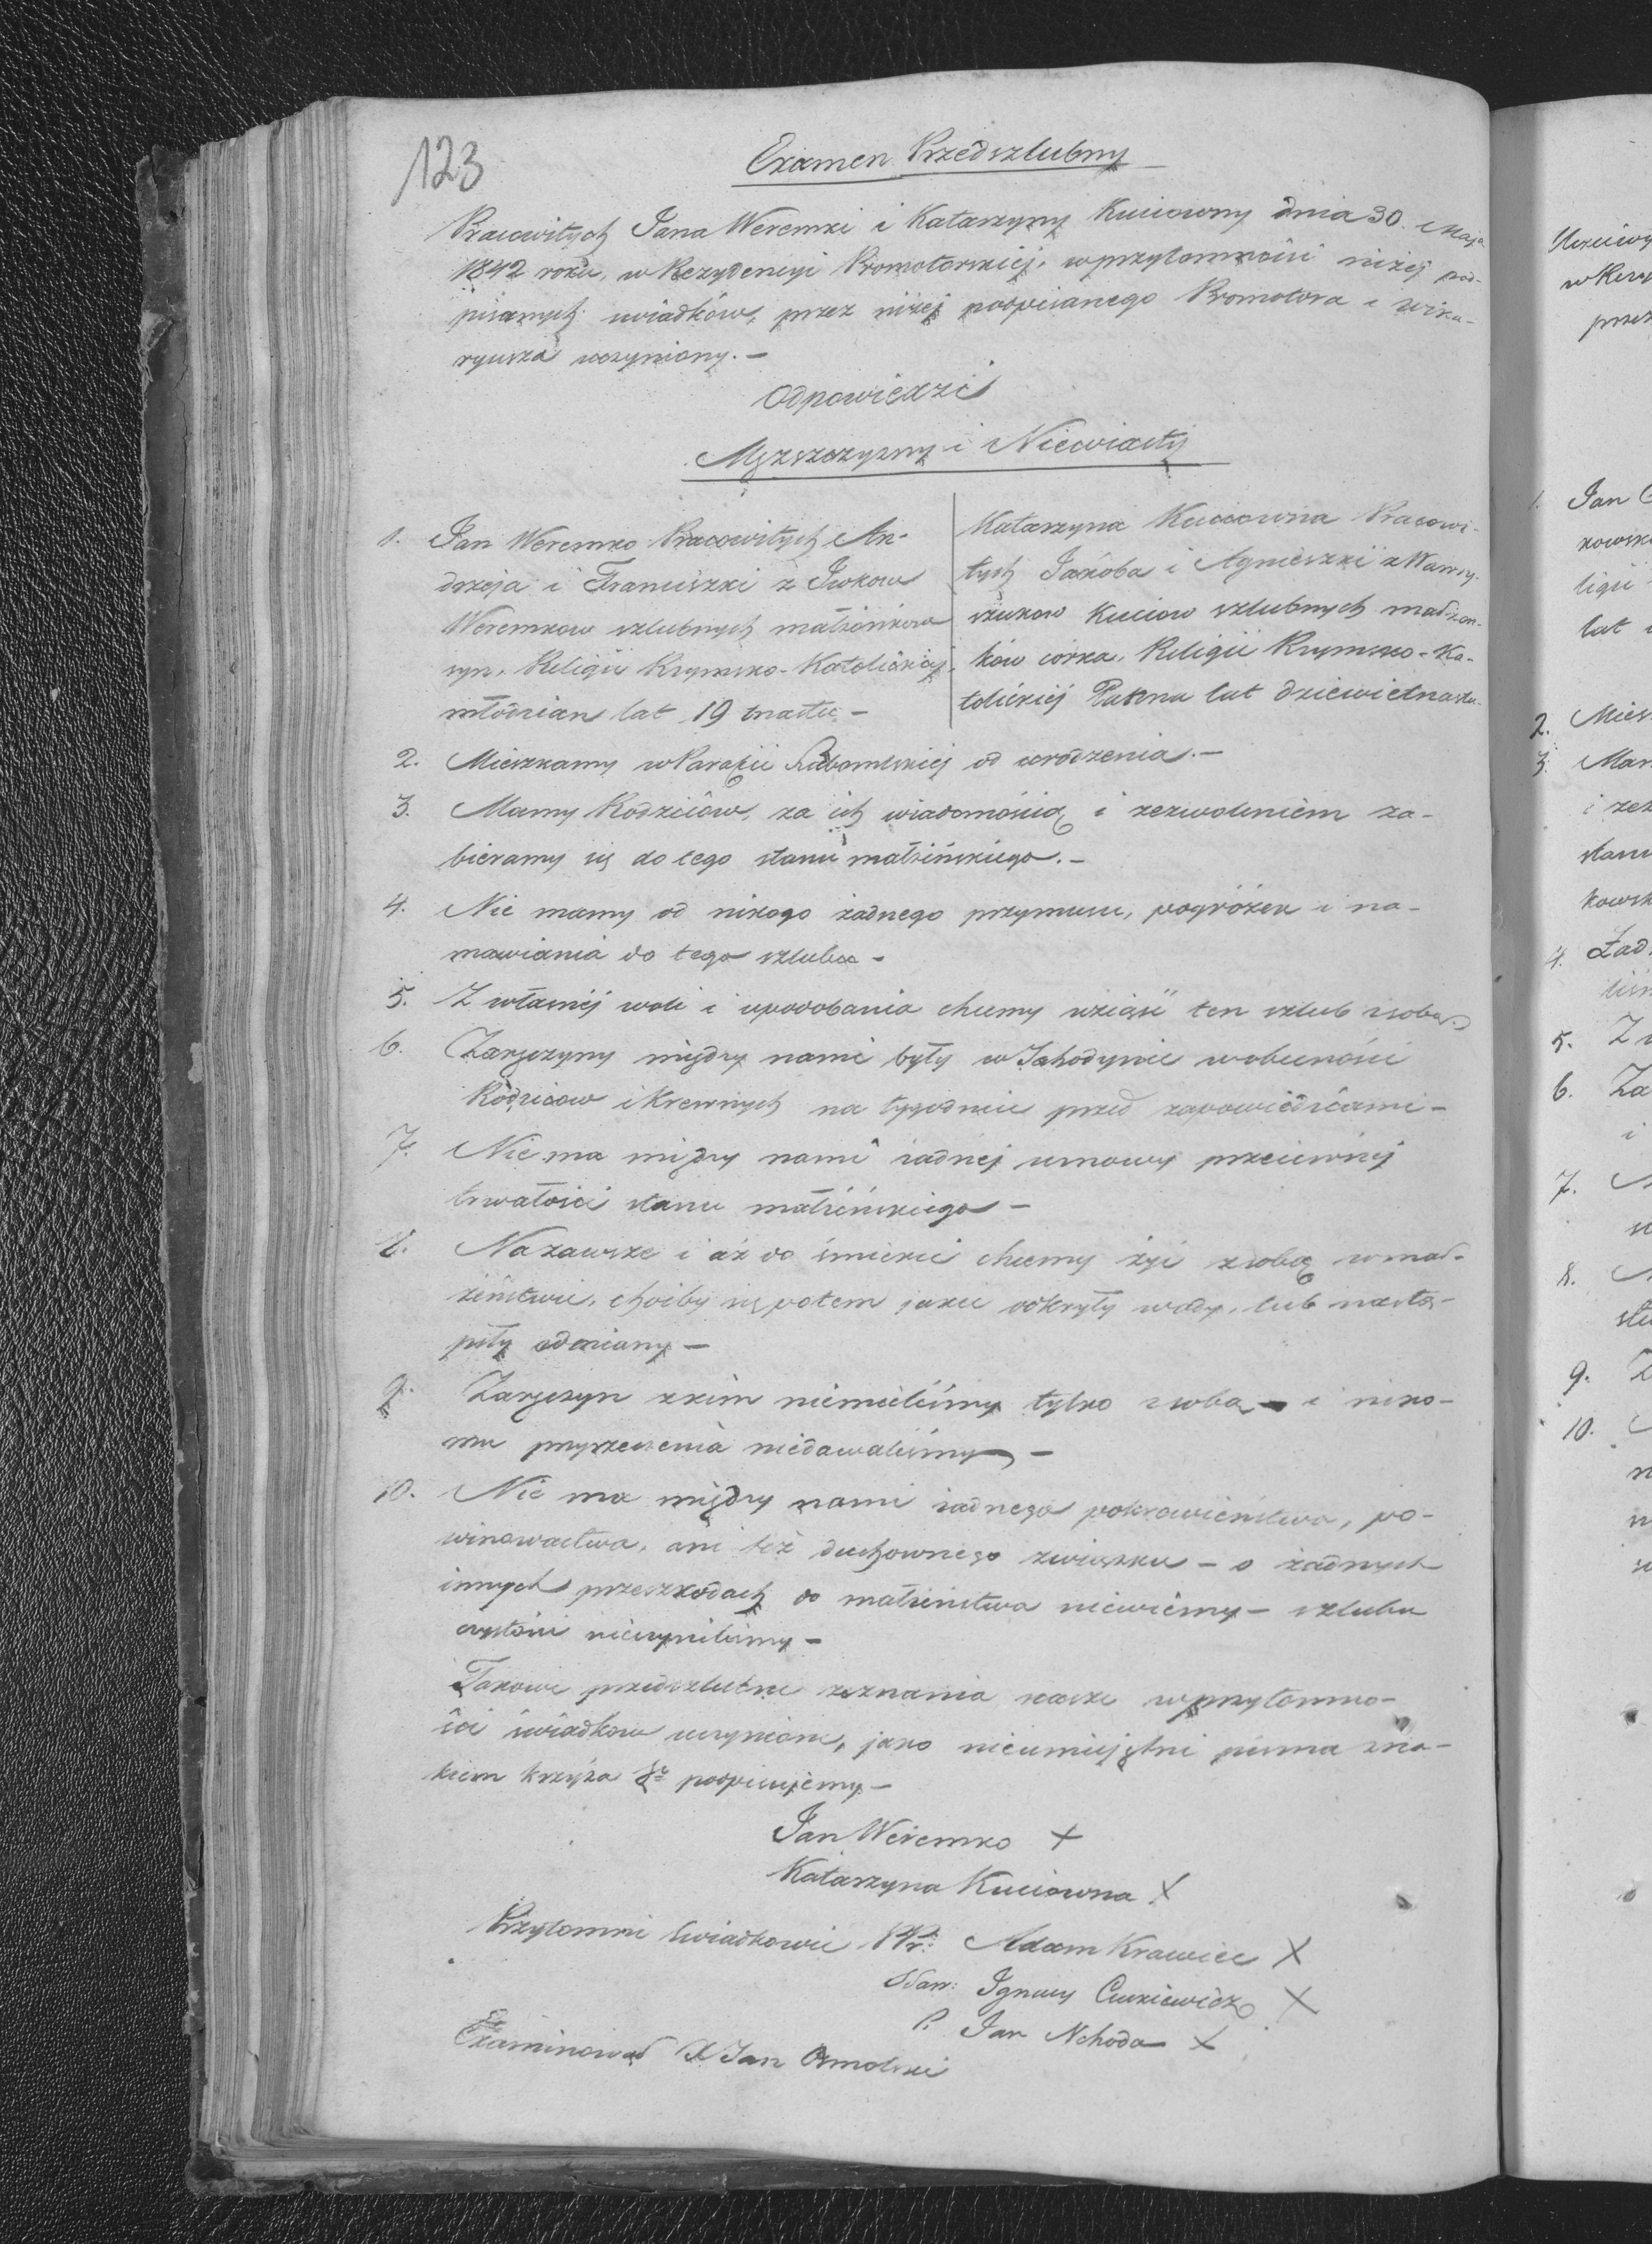 123
Examen Przedszlubny
Pracowitych Jana Weremki i Katarzyny Kuciowny dnia 30. Maja
1842 roku, w Rezydencyi Promotorskiej, w przytomności niżej pod-
pisanych swiadków, przez niżej podpisanego Promotora i Wika-
ryusza uczyniony. —
Odpowiedzi
Męzszczyzny i Niewiasty
1. Jan Weremko Pracowitych An-
drzeja i Franciszki z Iwkow
Weremkow szlubnych małżonkow
syn, Religii Rzymsko-Katolickiej
młodzian lat 19 maÿący —
Katarzyna Kuciowna Pracowi-
tych Jakóba i Agnieszki z Wawry-
szukow Kuciow szlubnych małżon-
ków córka, Religii Rzymsko-Ka-
tolickiej Panna lat dziewietnastu
2. Mieszkamy w Parafii Lubomlskiej od urodzenia. —
3. Mamy Rodziców, za ich wiadomością i zezwoleniem za-
bieramy się do tego stanu małżeńskiego. —
4. Nie mamy od nikogo żadnego przymusu, pogróżek i na-
mawiania do tego szlubu —
5. Z własnéj woli i upodobania chcemy wziąść ten szlub z sobą.
6. Zaręczyny między nami były w Jahodynie w obecności
Rodzicow i Krewnych na tygodniu przed zapowiedziami —
7. Nie ma między nami żadnéj umowy przeciwnéj
trwałości stanu małżeńskiego —
8. Na zawsze i aż do śmierci chcemy żyć z sobą w mał-
żeństwie, choćby się potem jakie odkryły wady, lub nastą-
piły odmiany —
9. Zaręczyn z kim niemieliśmy tylko z sobą — i niko-
mu przyrzeczenia niedawaliśmy —
10. Nie ma między nami żadnego pokrewieństwa, po-
winowactwa, ani też duchownego związku — o żadnych
innych przeszkodach do małżeństwa niewiemy — szlubu
czystości nieczyniliśmy —
Takowe przedszlubne zeznania nasze w przytomno-
ści świadkow uczynione, jako nieumiejętni pisma zna-
kiem krzyża S. podpisujemy —
Jan Weremko +
Katarzyna Kuciowna X
Przytomni Swiadkowie PPr: Adam Krawiec X
Sław: Ignacy Curkiewicz X
P. Jan Nehoda X
Examinował X Jan Osmolski